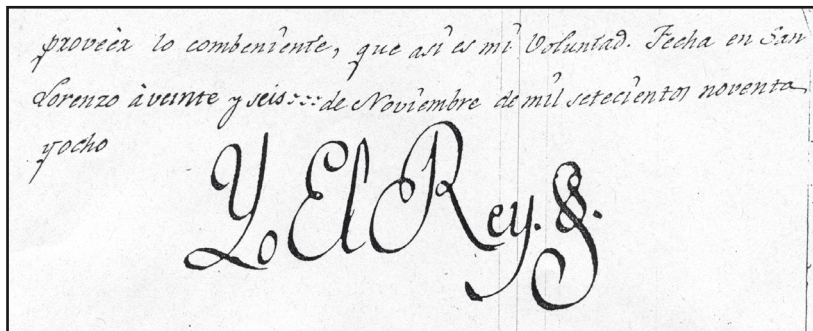 proveèr lo combeniente, que asi es mi Voluntad. Fecha en San
Lorenzo à veinte y seis::: de Noviembre de mil setecientos noventa
y ocho
Yo El Rey. §.